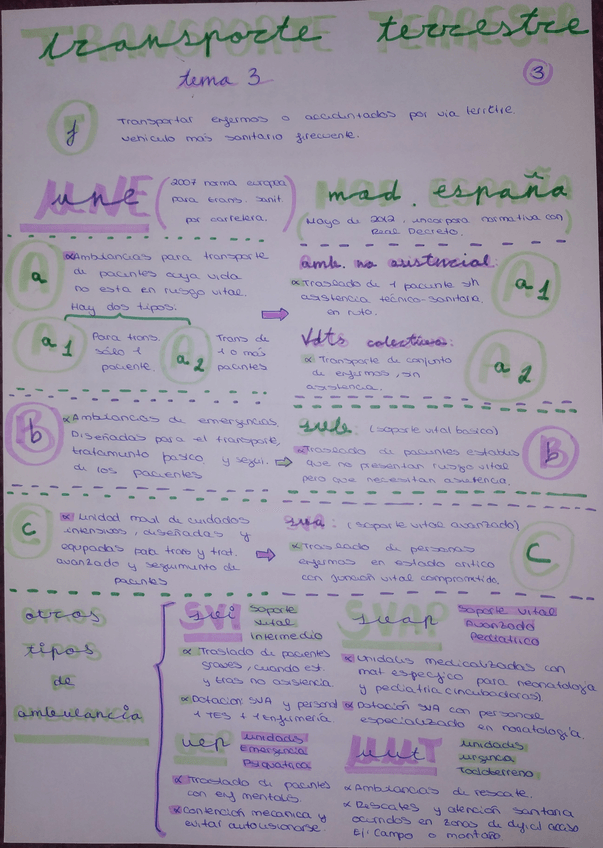 transporte terrestre
tema 3
3
f
Transportar enfermos o accidentados por via terrestre.
vehiculo más sanitario frecuente.
UNE
une
(2007 norma europea
para trans. sanit.
por carretera.)
mod. españa
(Mayo de 2012. incorpora normativa con
Real Decreto.)
A
a
∝ Ambulancias para transporte
de pacientes cuya vida
no esta en riesgo vital.
Hay dos tipos:
a1
Para trans.
sólo 1
paciente.
a2
Trans de
1 o más
pacientes
amb. no asistencial:
∝ Traslado de 1 paciente sin
asistencia técnico-sanitaria
en ruta.
a1
Vdts colectivos:
∝ Transporte de conjunto
de enfermos, sin
asistencia.
a2
B
b
∝ Ambulancias de emergencias
Diseñadas para el transporte,
tratamiento basico y segui.
de los pacientes
svb (soporte vital basico)
∝ Traslado de pacientes estables
que no presentan riesgo vital
pero que necesitan asistencia.
b
c
∝ Unidad movil de cuidados
intensivos, diseñadas y
equipadas para trans y trat.
avanzado y seguimiento de
pacientes
sva: (soporte vital avanzado)
∝ Traslado de personas
enfermas en estado critico
con función vital comprometida.
C
otros
tipos
de
ambulancia
SVI
svi
Soporte
Vital
Intermedio
∝ Traslado de pacientes
graves, cuando est.
y tras no asistencia
∝ Dotacion SVA y personal
1 TES + 1 enfermería.
SVAP
svap
Soporte Vital
Avanzado
Pediatrico
∝ Unidades medicalizadas con
mat especifico para neonatologia
y pediatria (incubadoras).
∝ Dotación SVA con personal
especializado en nonatología.
uep
Unidades
Emergencia
Psiquiatrica
∝ Traslado de pacientes
con enf mentales.
∝ Contención mecanica y
evitar autolesionarse.
UUT
uut
unidades
urgencia
Todoterreno
∝ Ambulancias de rescate.
∝ Rescates y atención sanitaria
ocurridos en zonas de dificil acceso
Ej: Campo o montaña